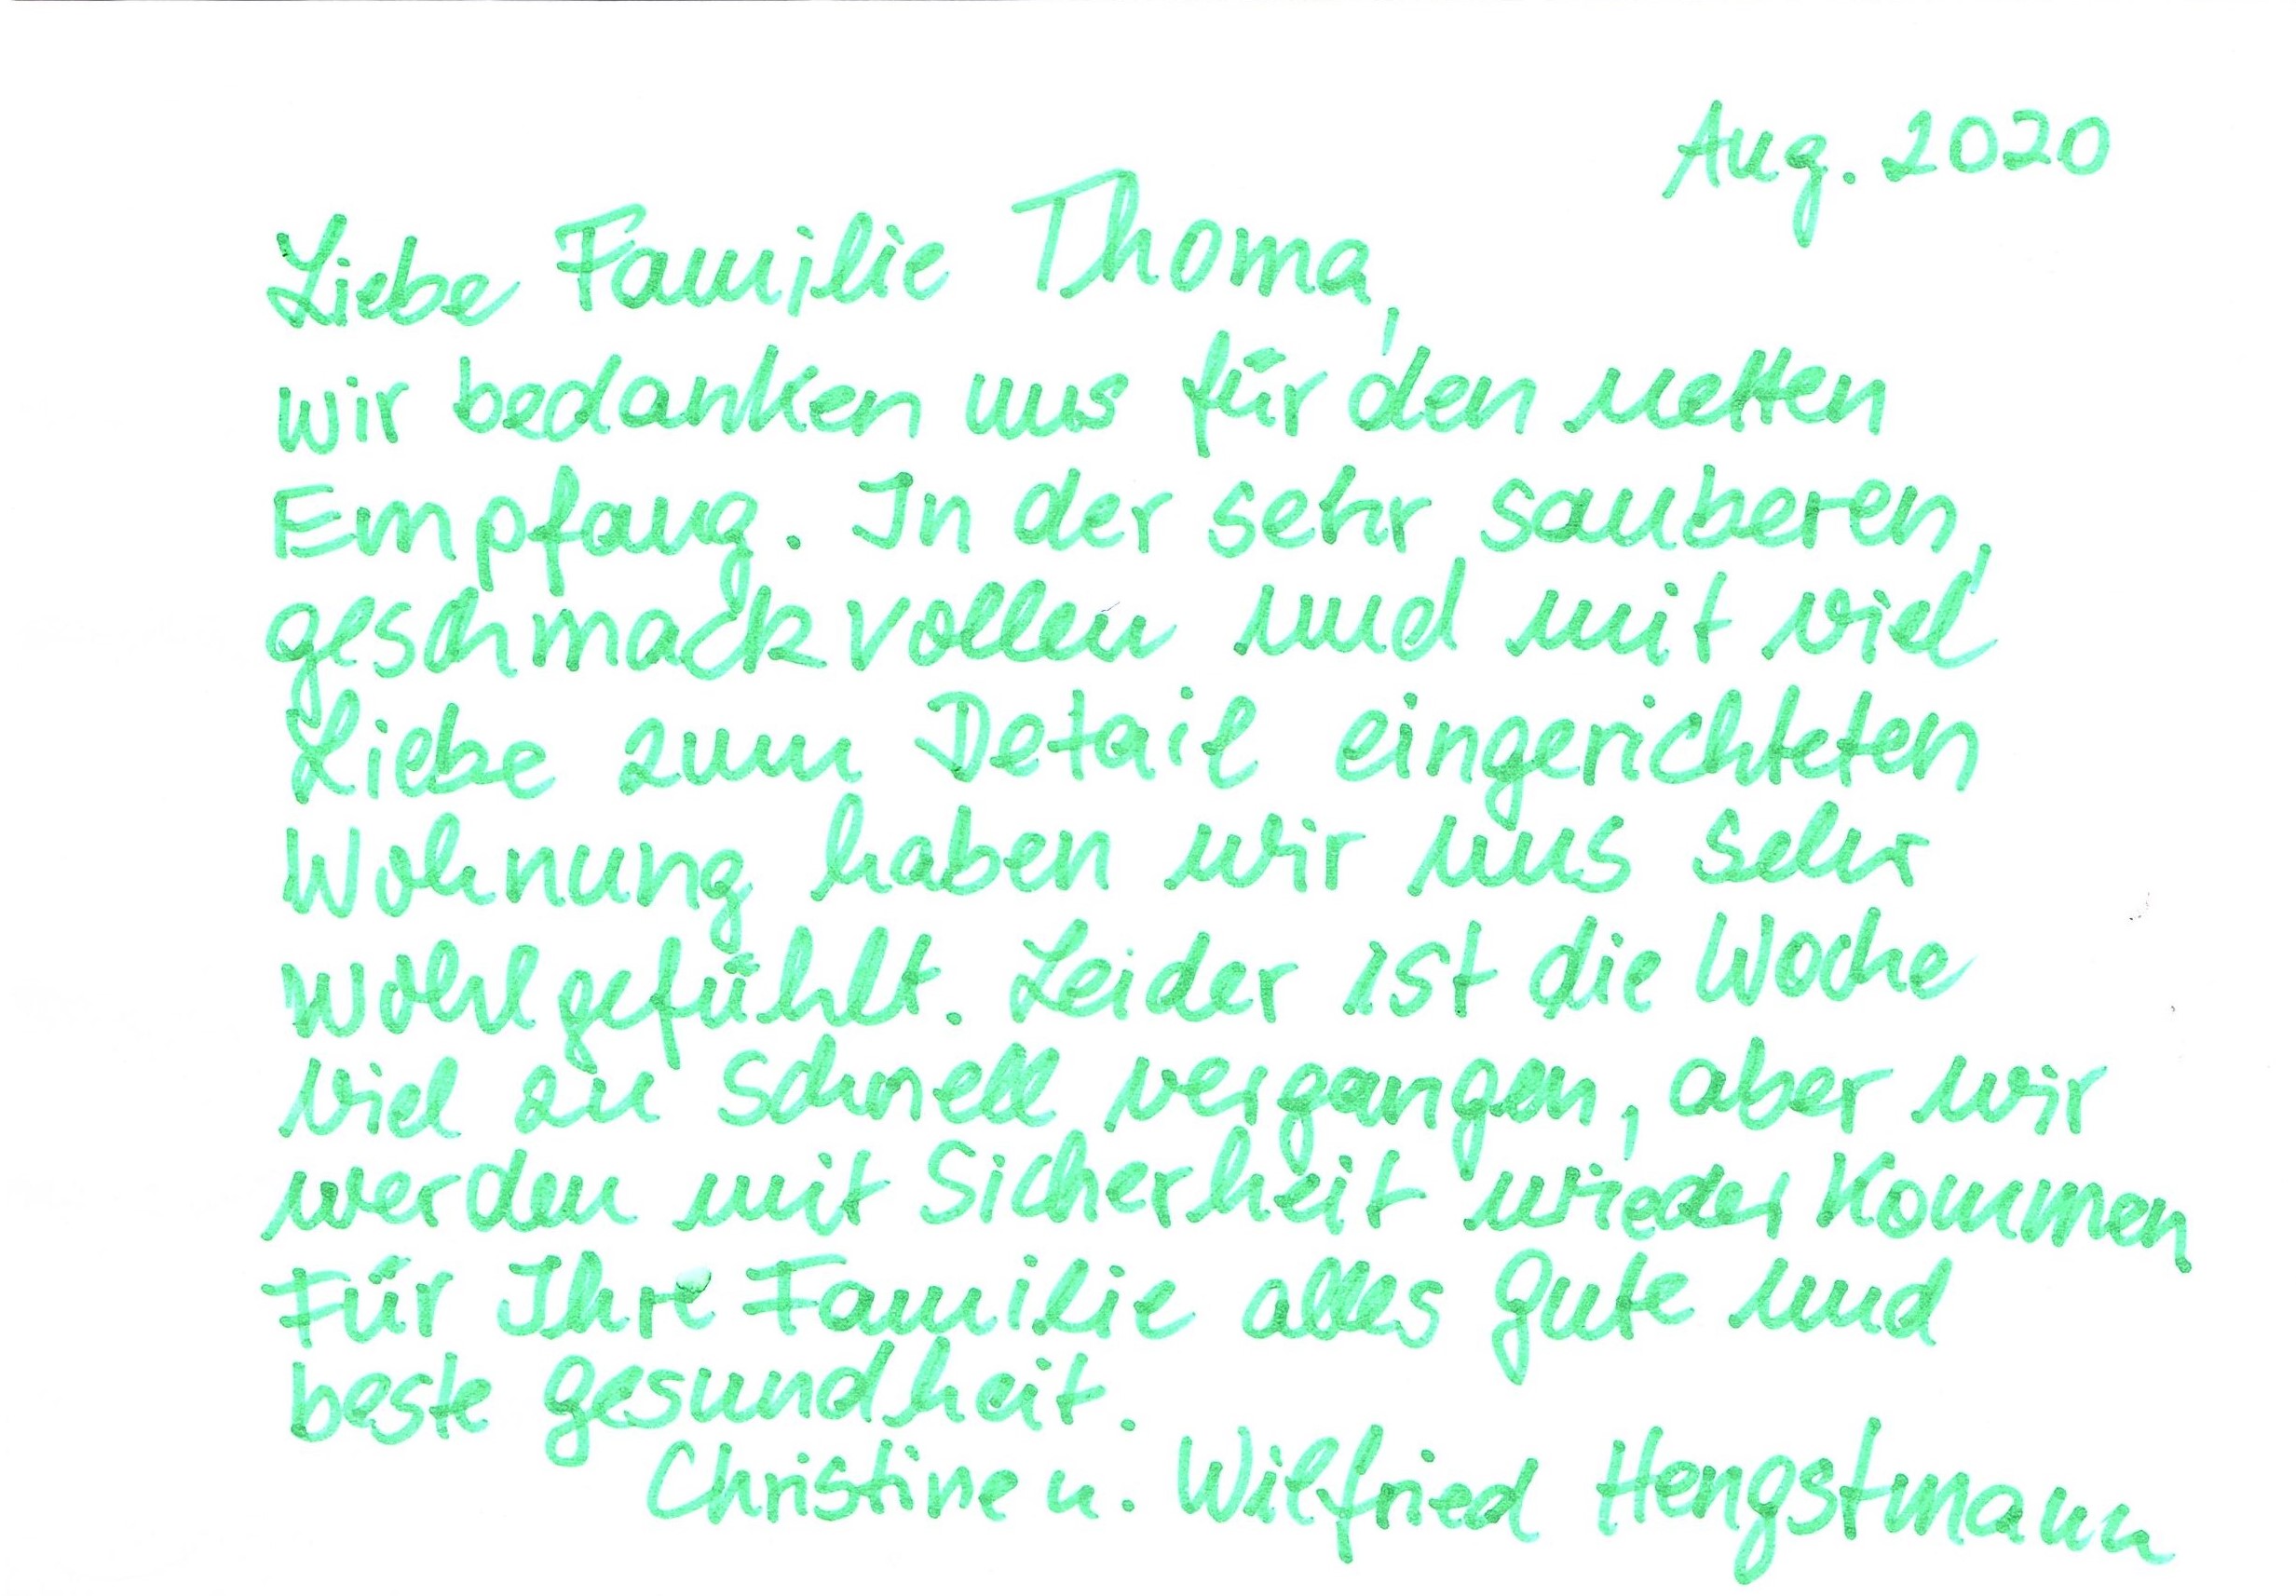 Aug. 2020
Liebe Familie Thoma,
wir bedanken uns für den netten
Empfang. In der sehr sauberen,
geschmackvollen und mit viel
Liebe zum Detail eingerichteten
Wohnung haben wir uns sehr
wohlgefühlt. Leider ist die Woche
viel zu schnell vergangen, aber wir
werden mit Sicherheit wieder kommen
Für Ihre Familie alles gute und
beste gesundheit.
Christine u. Wilfried Hengstmann